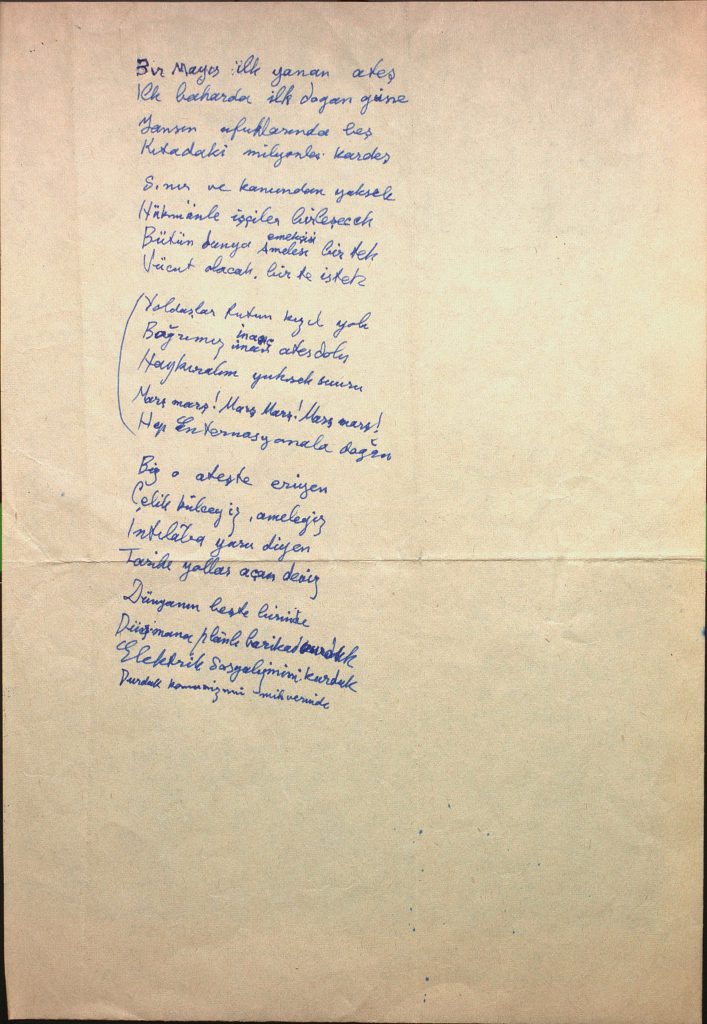 Bir Mayıs ilk yanan ateş
İlk baharda ilk doğan güne
Yansın ufuklarında beş
Kıtadaki milyonlar kardeş
Sınır ve kanundan yüksek
Hükmünle işçiler birleşecek
Bütün dunya emekçisi amelesi bir tek
Vücut olacak, bir te istek
Yoldaşlar tutun kızıl yolu
Bağrımız inanç ateş dolu
Haykıralım yuksek sunu
Marş marş! Marş Marş! Marş marş!
Hep Enternasyonala doğru
Biz o ateşte eriyen
Çelik külçeyiz, ameleyiz
İntılâba yürü diyen
Tarihe yollar açan deviz
Dünyanın beşte birinde
Düşmana plânlı barikad kurduk
Elektrik Sosyalizmini kurduk
Durduk komunizmin mihverinde